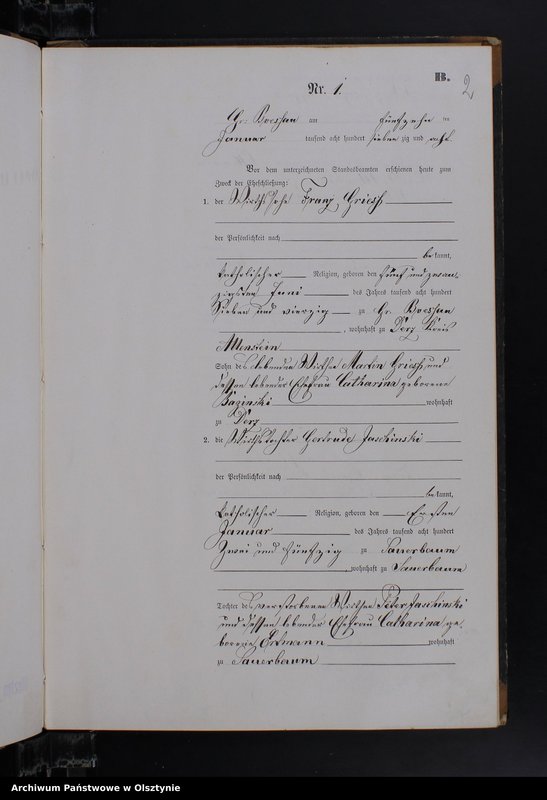 B.
2
Nr. 1.
Gr. Boessau am fünfzehn ten
Januar tausend acht hundert sieben zig und acht.
Vor dem unterzeichneten Standesbeamten erschienen heute zum
Zweck der Eheschließung:
1. der Wirthssohn Franz Griesch
der Persönlichkeit nach
bekannt,
katholischer Religion, geboren den fünf und zwan-
zigsten Juni des Jahres tausend acht hundert
sieben und vierzig zu Gr. Boessau
, wohnhaft zu Derz Kreis
Allenstein
Sohn des lebenden Wirthen Martin Griesch und
dessen lebender Ehefrau Catharina geborene
wohnhaft
zu Derz
2. die Wirthstochter Gertrude Jaschinski
der Persönlichkeit nach
bekannt,
katholischer Religion, geboren den Ersten
Januar des Jahres tausend acht hundert
Zwei und fünfzig zu Sauerbaum
, wohnhaft zu Sauerbaum
Tochter des verstorbenen Wirthen Peter Jaschinski
und dessen lebender Ehefrau Catharina ge-
borene Ertmann wohnhaft
zu Sauerbaum
Archiwum Państwowe w Olsztynie